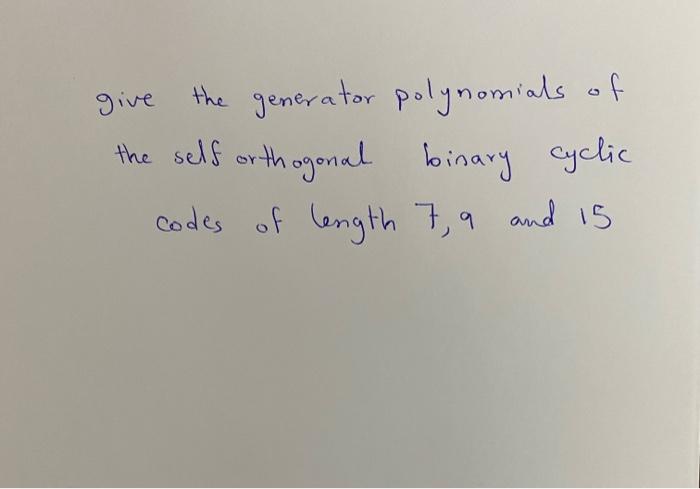 give the generator polynomials of
the self orthogonal binary cyclic
codes of length 7, 9 and 15